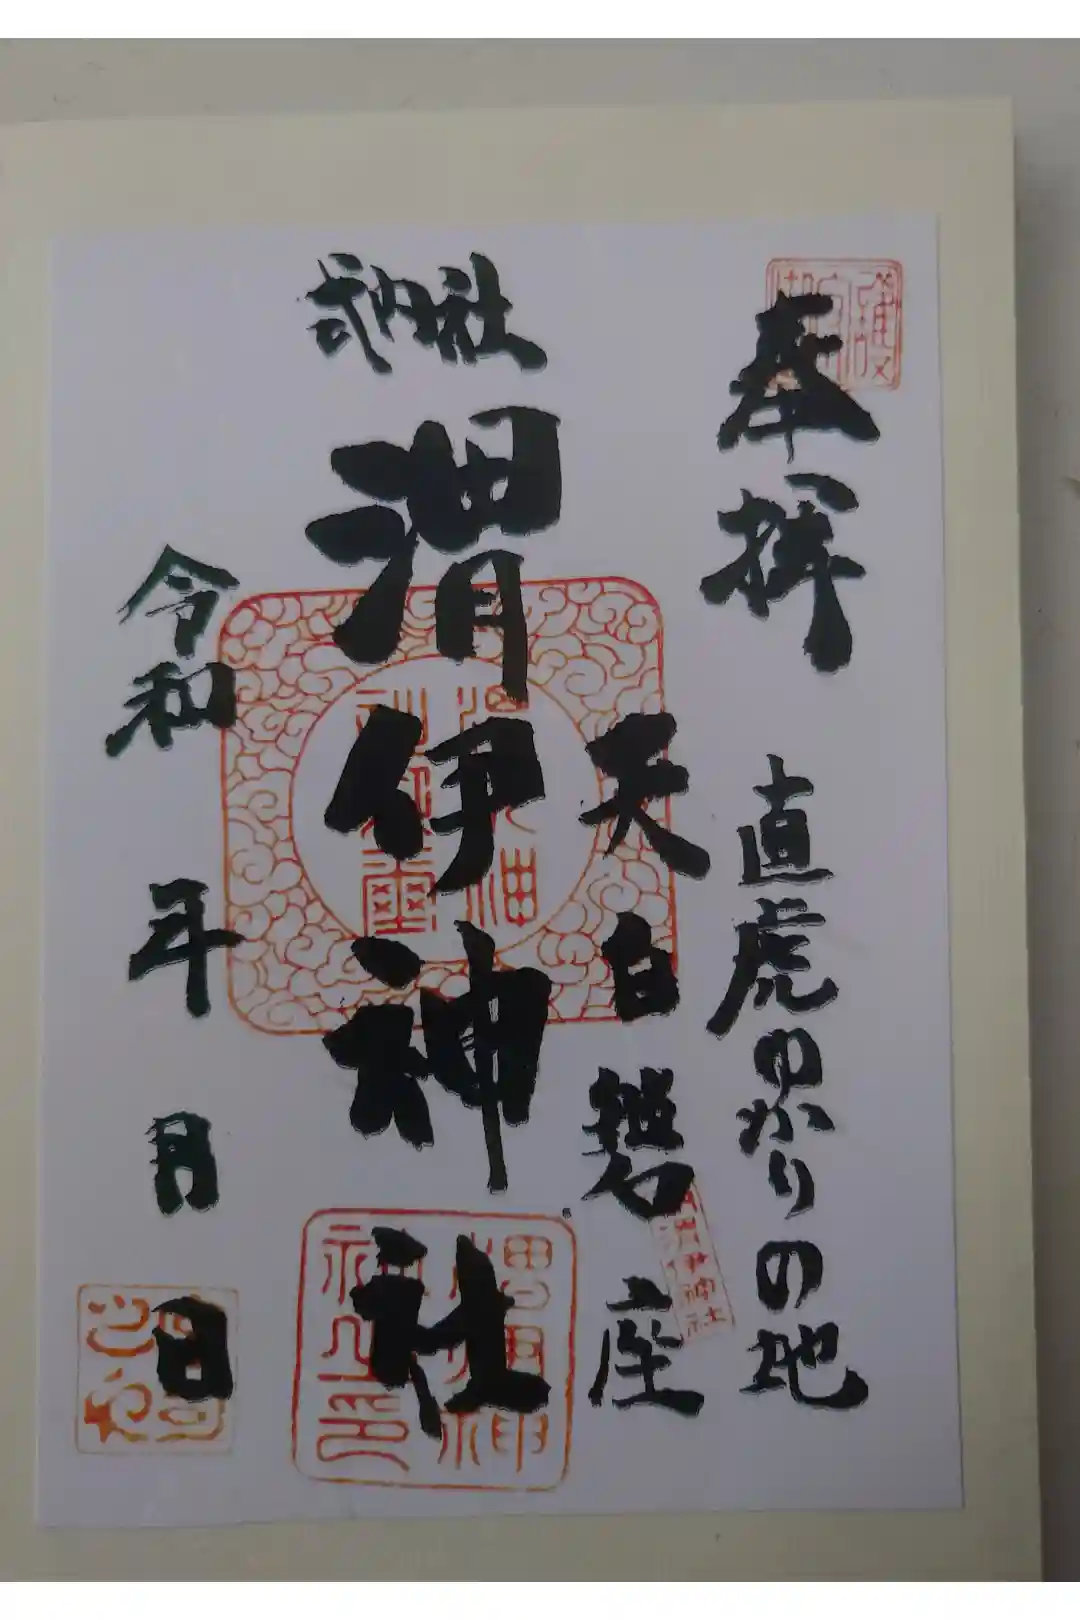 奉拝
直虎ゆかりの地
天白磐座
式内社
渭伊神社
令和 年 月 日
渭伊神社